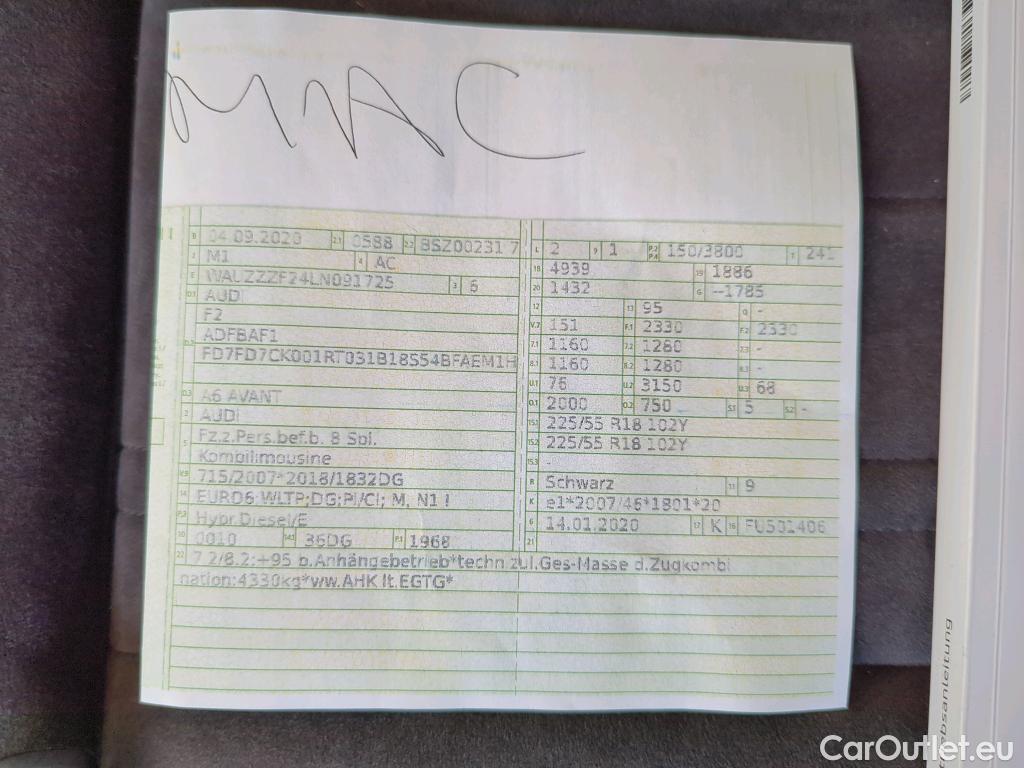 MAC
B 04.09.2020 2.1 0588 2.2 BSZ00231 7
J M1 4 AC
E WAUZZZF24LN091725 3 6
D.1 AUDI
F2
D.2 ADFBAF1
FD7FD7CK001RT031B18S54BFAEM1H
D.3 A6 AVANT
2 AUDI
5 Fz.z.Pers.bef.b. 8 Spl.
Kombilimousine
V.9 715/2007*2018/1832DG
14 EURO6 WLTP;DG;PI/CI; M, N1 I
P.3 Hybr.Diesel/E
10 0010 14.1 36DG P.1 1968
L 2 9 1 P.2 P.4 150/3800 T 241
18 4939 19 1886
20 1432 G --1785
12 13 95 Q -
V.7 151 F.1 2330 F.2 2330
7.1 1160 7.2 1280 7.3 -
8.1 1160 8.2 1280 8.3 -
U.1 76 U.2 3150 U.3 68
O.1 2000 O.2 750 S.1 5 S.2 -
15.1 225/55 R18 102Y
15.2 225/55 R18 102Y
15.3 -
R Schwarz 11 9
K e1*2007/46*1801*20
6 14.01.2020 17 K 16 FU501406
21
22 7.2/8.2:+95 b.Anhängebetrieb*techn.zul.Ges-Masse d.Zugkombi
nation:4330kg*ww.AHK lt.EGTG*
ebsanleitung
CarOutlet.eu